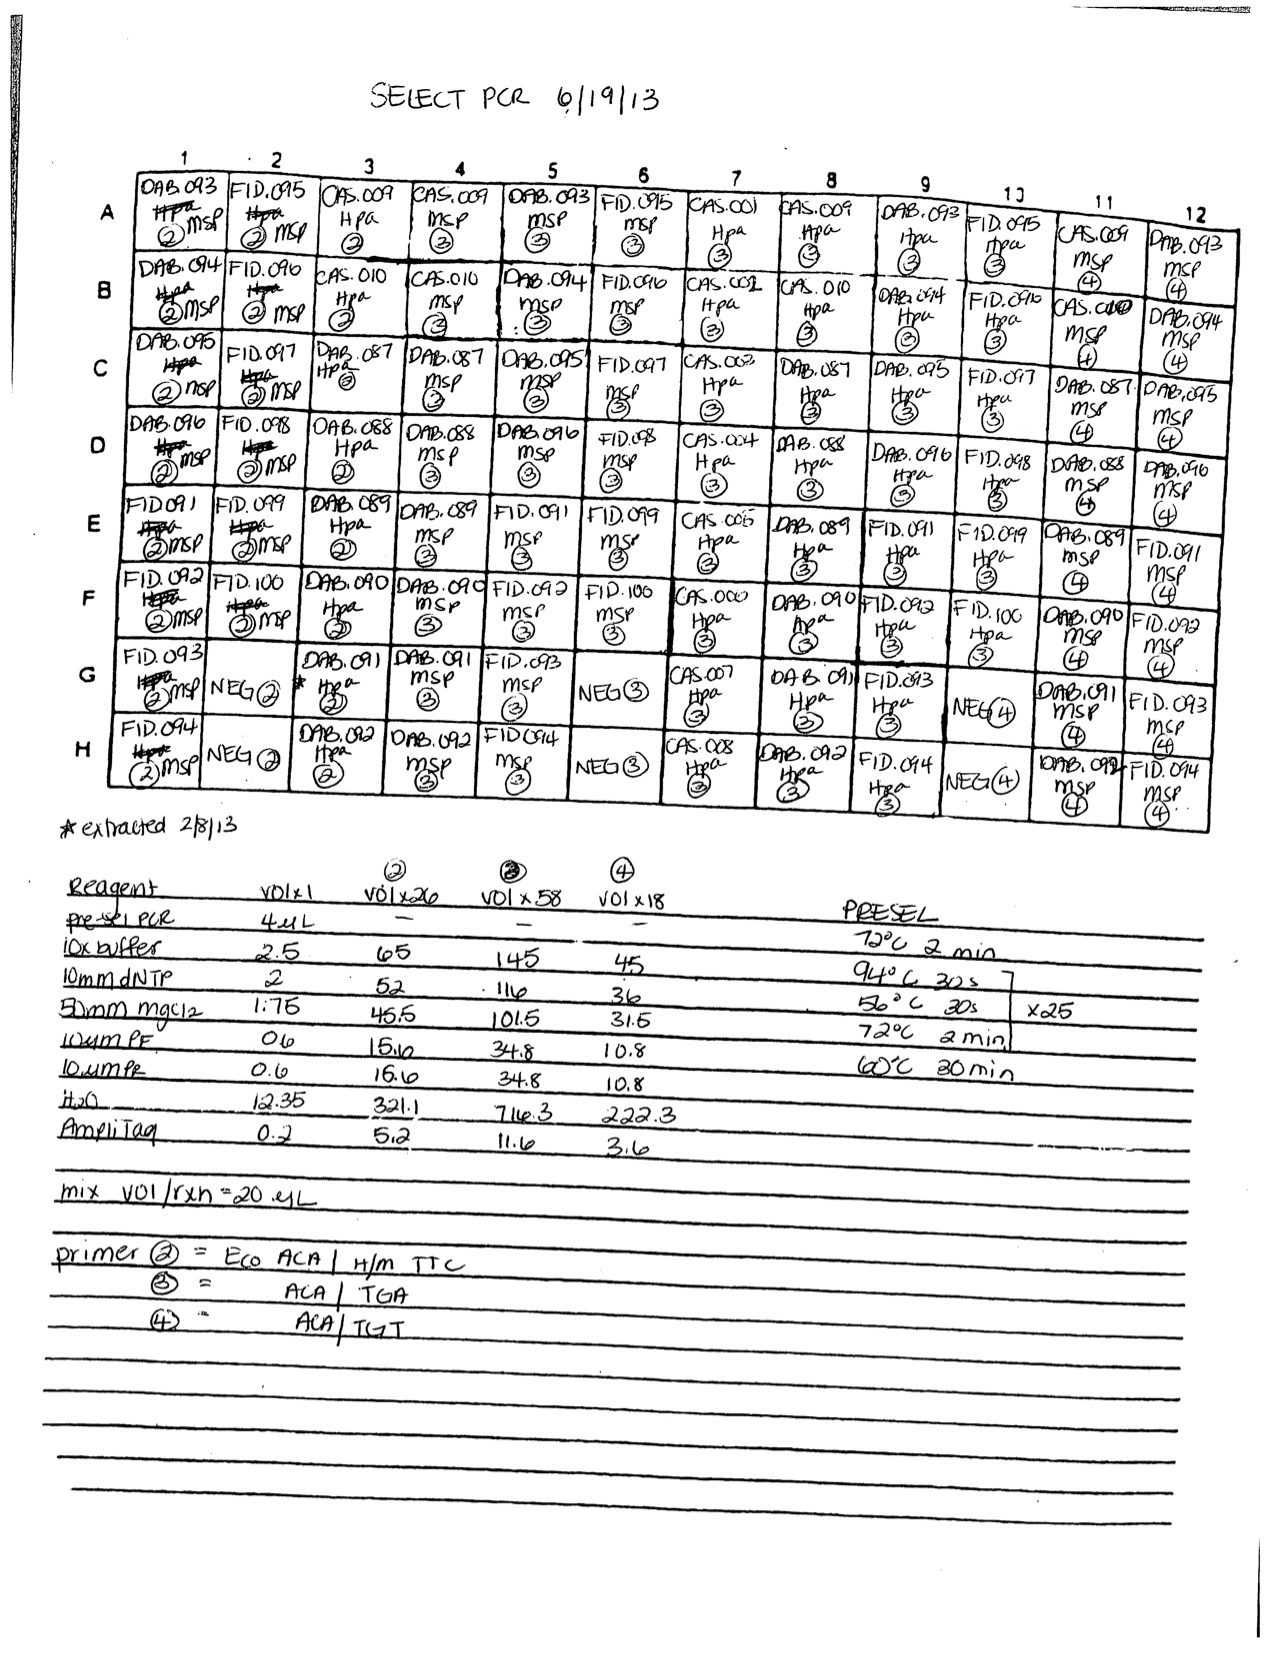 SELECT PCR 6/19/13
1 2 3 4 5 6 7 8 9 10 11 12
A
DAB.093 FID.095 CAS.009 CAS.009 DAB.093 FID.095 CAS.001 CAS.009 DAB.093 FID.095 CAS.009 DAB.093
Hpa Hpa Hpa msp msp msp Hpa Hpa Hpa Hpa msp msp
② msp ② msp ② ③ ③ ③ ③ ③ ③ ③ ④ ④
B
DAB.094 FID.096 CAS.010 CAS.010 DAB.094 FID.096 CAS.002 CAS.010 DAB.094 FID.096 CAS.010 DAB.094
Hpa Hpa Hpa msp msp msp Hpa Hpa Hpa Hpa msp msp
② msp ② msp ② ③ ③ ③ ③ ③ ③ ③ ④ ④
C
DAB.095 FID.097 DAB.087 DAB.087 DAB.095 FID.097 CAS.003 DAB.087 DAB.095 FID.097 DAB.087 DAB.095
Hpa Hpa Hpa msp msp msp Hpa Hpa Hpa Hpa msp msp
② msp ② msp ② ③ ③ ③ ③ ③ ③ ③ ④ ④
D
DAB.096 FID.098 DAB.088 DAB.088 DAB.096 FID.098 CAS.004 DAB.088 DAB.096 FID.098 DAB.088 DAB.096
Hpa Hpa Hpa msp msp msp Hpa Hpa Hpa Hpa msp msp
② msp ② msp ② ③ ③ ③ ③ ③ ③ ③ ④ ④
E
FID091 FID.099 DAB.089 DAB.089 FID.091 FID.099 CAS.005 DAB.089 FID.091 FID.099 DAB.089 FID.091
Hpa Hpa Hpa msp msp msp Hpa Hpa Hpa Hpa msp msp
② msp ② msp ② ③ ③ ③ ③ ③ ③ ③ ④ ④
F
FID.092 FID.100 DAB.090 DAB.090 FID.092 FID.100 CAS.006 DAB.090 FID.092 FID.100 DAB.090 FID.092
Hpa Hpa Hpa msp msp msp Hpa Hpa Hpa Hpa msp msp
② msp ② msp ② ③ ③ ③ ③ ③ ③ ③ ④ ④
G
FID.093 NEG② DAB.091 DAB.091 FID.093 NEG③ CAS.007 DAB.091 FID.093 NEG④ DAB.091 FID.093
Hpa * Hpa msp msp Hpa Hpa Hpa msp msp
② msp ② ③ ③ ③ ③ ③ ④ ④
H
FID.094 NEG② DAB.092 DAB.092 FID094 NEG③ CAS.008 DAB.092 FID.094 NEG④ DAB.092 FID.094
Hpa Hpa msp msp Hpa Hpa Hpa msp msp
② msp ② ③ ③ ③ ③ ③ ④ ④
* extracted 2/8/13
② ③ ④
Reagent vol x1 vol x26 vol x58 vol x18
pre-sel PCR 4µL – – –
10x buffer 2.5 65 145 45
10mm dNTP 2 52 116 36
50mm mgcl2 1.75 45.5 101.5 31.5
10µm PF 06 15.6 34.8 10.8
10µm PR 0.6 15.6 34.8 10.8
H2O 12.35 321.1 716.3 222.3
AmpliTaq 0.2 5.2 11.6 3.6
PRESEL
72°C 2 min
94°C 30s
56°C 30s x25
72°C 2 min
60°C 30min
mix vol/rxn = 20 µL
primer ② = Eco ACA / H/m TTC
③ = ACA / TGA
④ = ACA / TGT